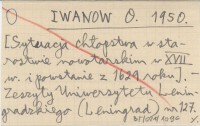 IWANOW O. 1950.
[Sytuacja chłopstwa w sta-
rostwie nowotarskim w XVII
w. i powstanie z 1624 roku]. -
Zeszyty Uniwersytetu Lenin-
gradzkiego (Leningrad) nr 127.